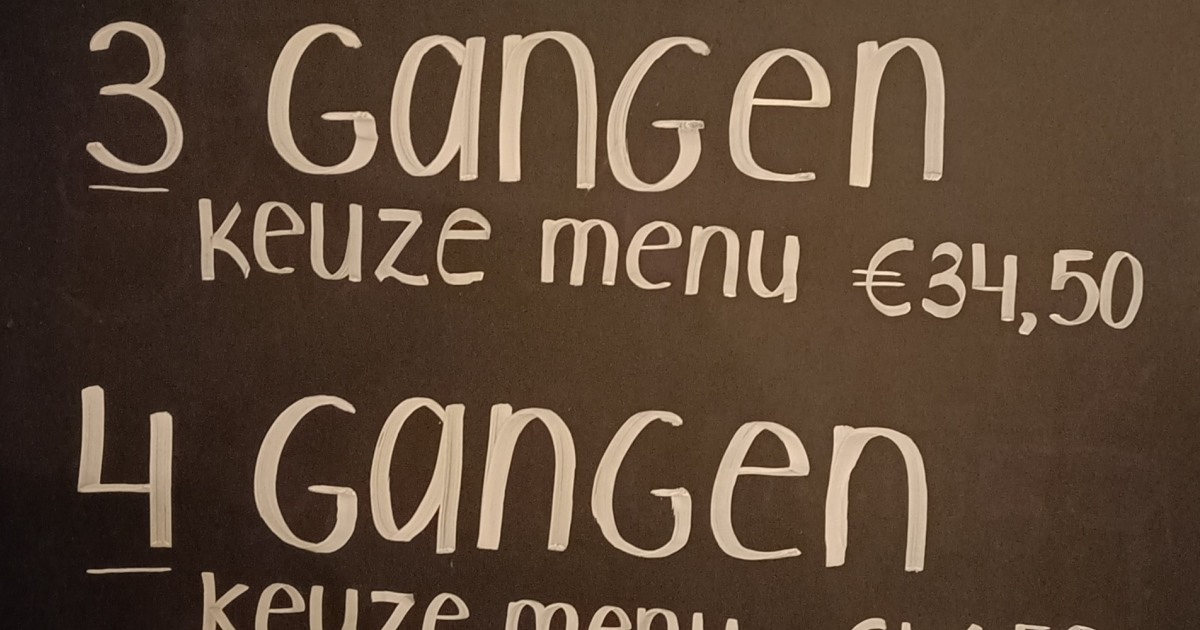 3 Gangen
keuze menu €34,50
4 Gangen
keuze menu